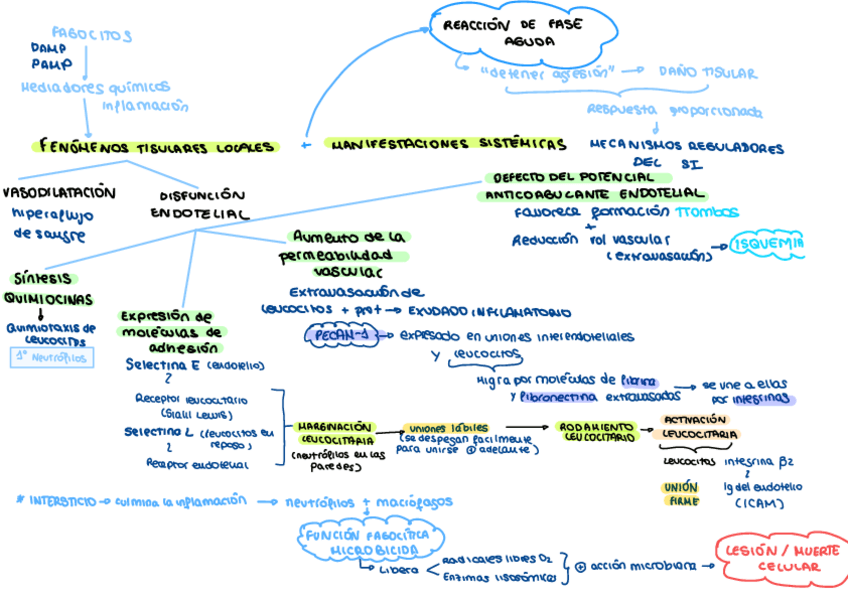 FAGOCITOS
DAMP
PAMP
Mediadores químicos
inflamación
REACCIÓN DE FASE
AGUDA
"detener agresión" → DAÑO TISULAR
Respuesta proporcionada
MECANISMOS REGULADORES
DEL SI
FENÓMENOS TISULARES LOCALES + MANIFESTACIONES SISTÉMICAS
VASODILATACIÓN
hiperaflujo
de sangre
DISFUNCIÓN
ENDOTELIAL
DEFECTO DEL POTENCIAL
ANTICOAGULANTE ENDOTELIAL
Favorece formación Trombos
+
Reducción vol vascular
(extravasación)
→ ISQUEMIA
Síntesis
QUIMIOCINAS
Quimiotaxis de
leucocitos
1º Neutrófilos
Expresión de
moléculas de
adhesión
Selectina E (endotelio)
Receptor leucocitario
(Sialil Lewis)
Selectina L (leucocitos en
reposo)
Receptor endotelial
Aumento de la
permeabilidad
vascular
Extravasación de
leucocitos + prot → EXUDADO INFLAMATORIO
PECAM-1 → expresado en uniones interendoteliales
Y leucocitos
Migra por moléculas de fibrina
y fibronectina extravasadas
→ se une a ellas
por integrinas
MARGINACIÓN
LEUCOCITARIA
(neutrófilos en las
paredes)
→ uniones lábiles
(se despegan facilmente
para unirse ⊕ adelante)
→ RODAMIENTO
LEUCOCITARIO
→ ACTIVACIÓN
LEUCOCITARIA
Leucocitos integrina β2
UNIÓN
FIRME
Ig del endotelio
(ICAM)
* INTERSTICIO → culmina la inflamación → neutrófilos + macrófagos
FUNCIÓN FAGOCÍTICA
MICROBICIDA
→ Libera
Radicales libres O2
Enzimas lisosómicas
⊕ acción microbiana →
LESIÓN / MUERTE
CELULAR